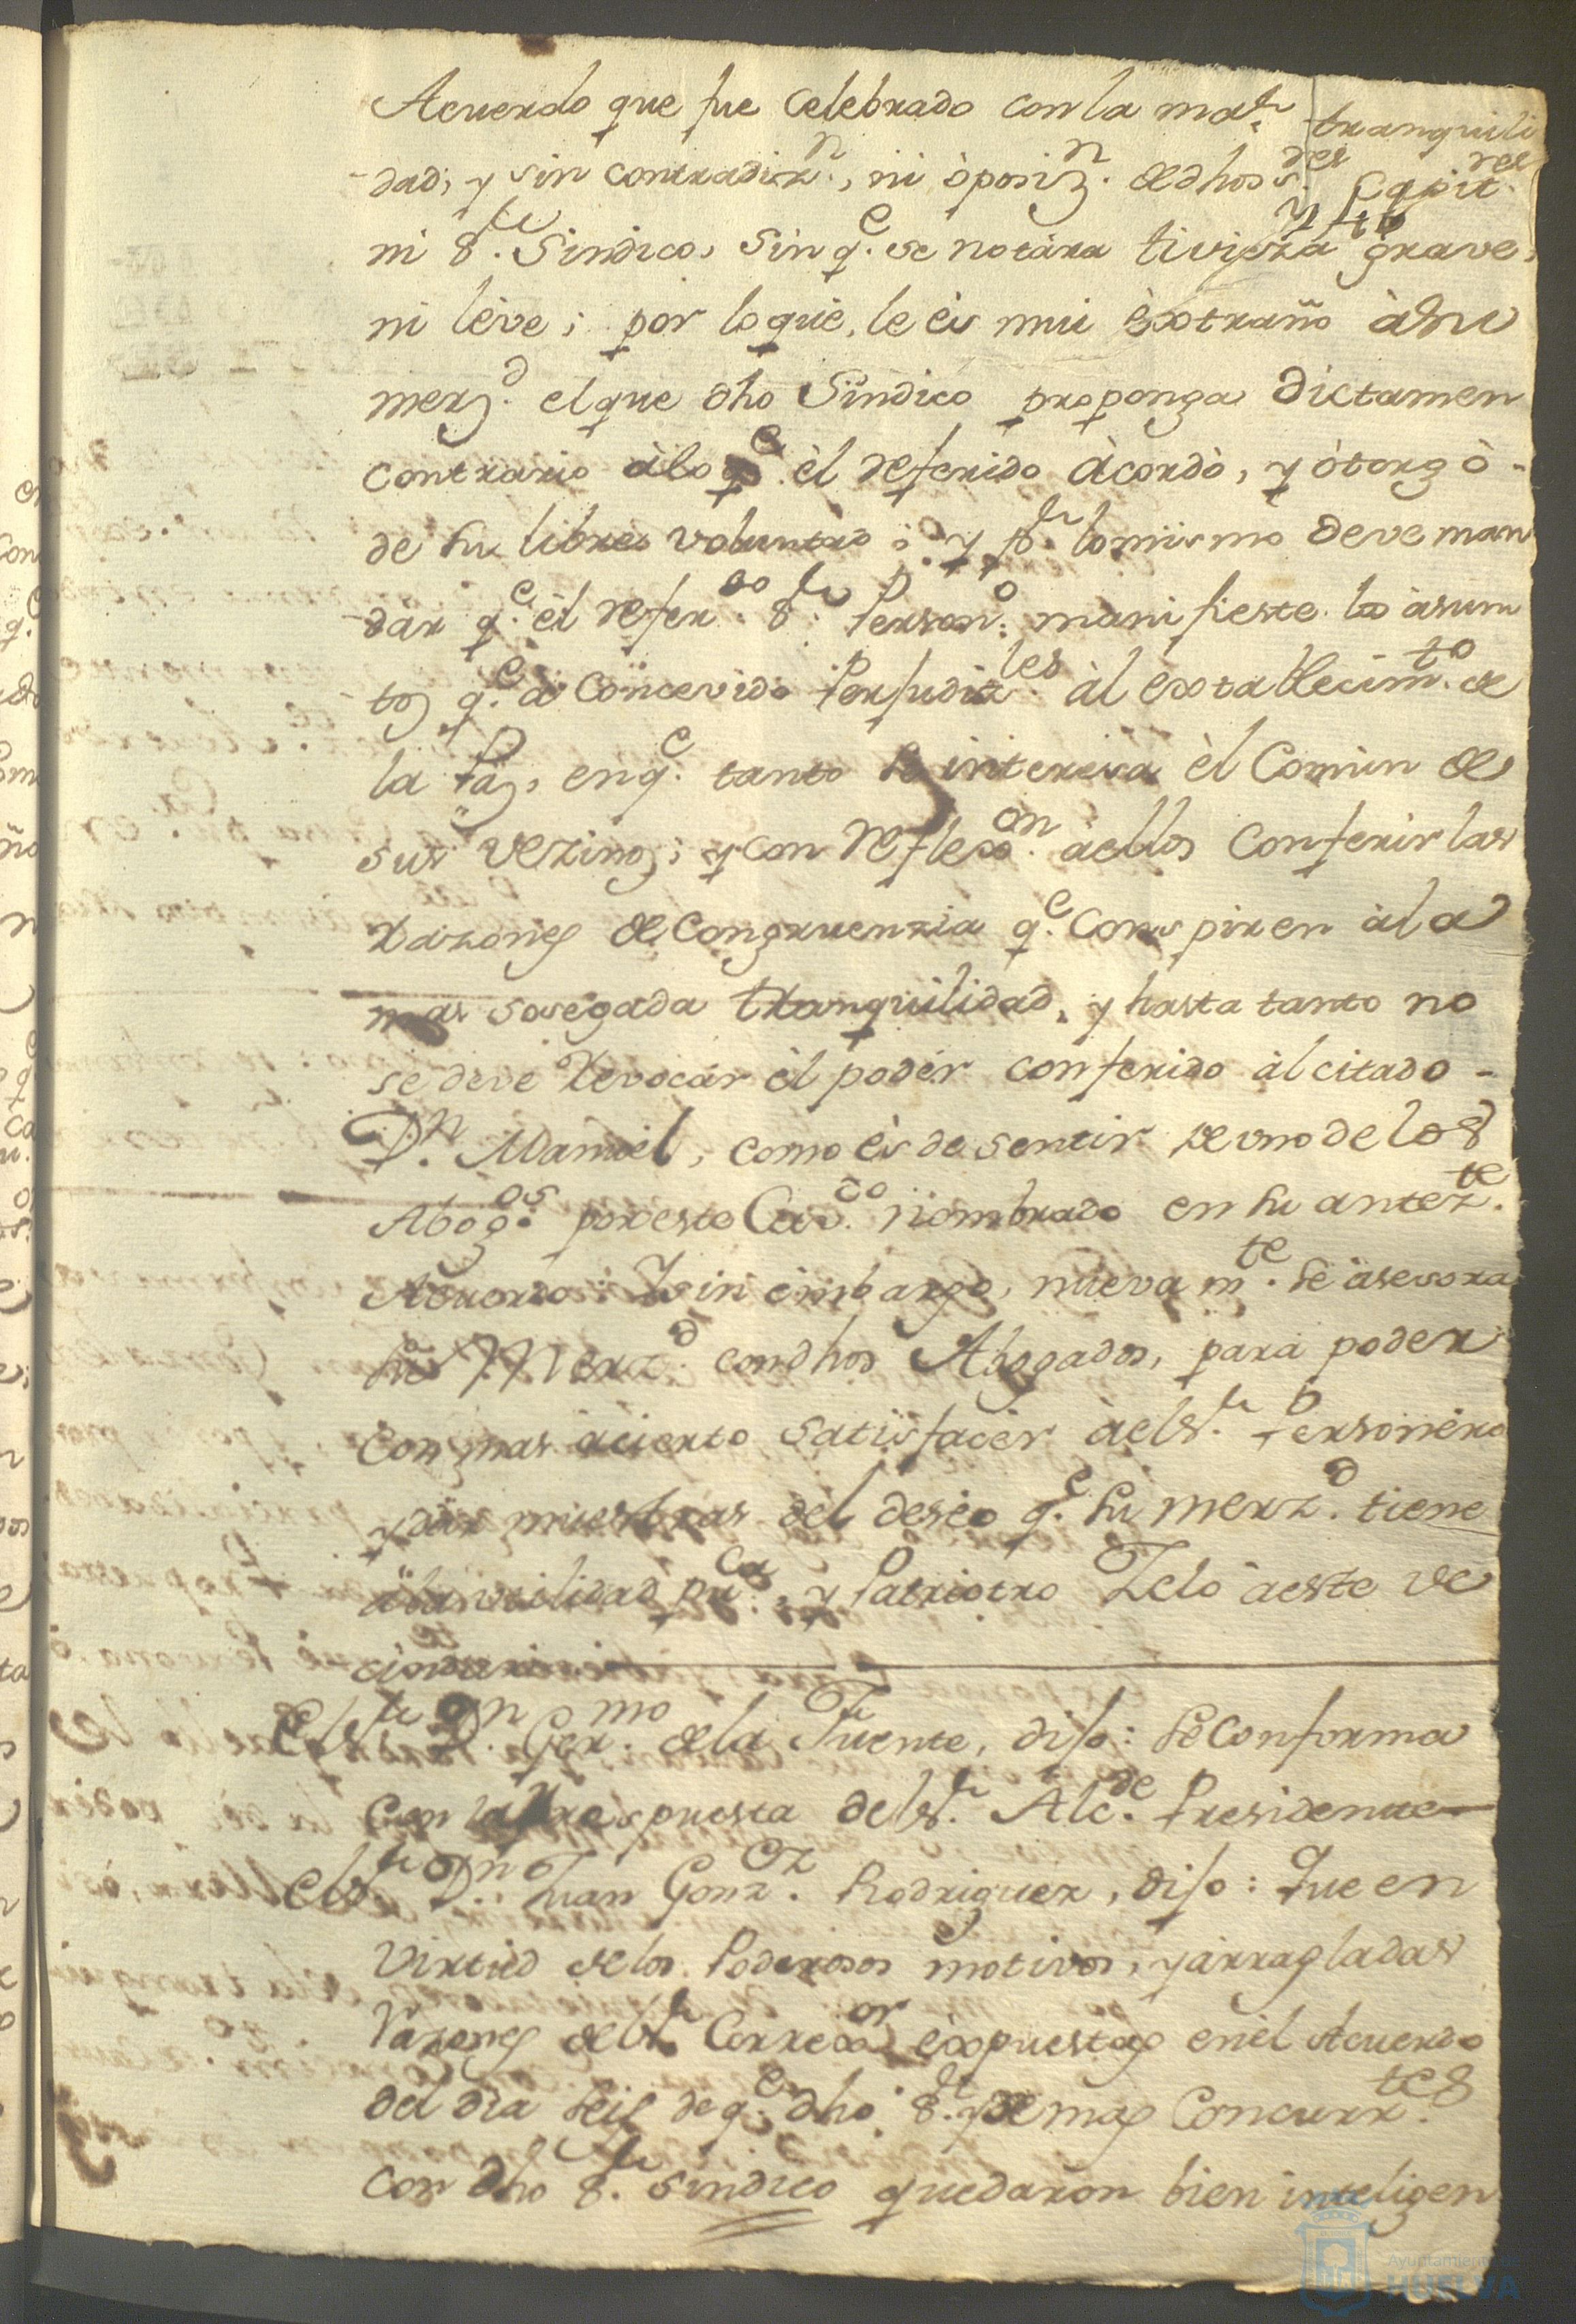 Acuerdo que fue celebrado con la mar. tranquili
dad, y sin contradizn., ni òposizn. de dhos ss.res Capit.res
ni Sr. Sindico, sin qe. se notàra tivieza grave,
ni lève; por loquè, le ès mui èxtraño àsu
merzd. el que dho Sindico proponga dictamen
contrario àlo qe. èl referido àcordò, y òtorgò -
de su libre voluntad; y pr. lomismo deve man
dàr qe. èl referdo. Sr. Persono. manifieste lo àsum
tos qe. à concevido Perjudiales àl extablecimto. de
la Paz, en qe. tanto se interesa èl Comùn de
sus vezinos; y con reflexon. àellos conferir las
Razones de Congruenzia qe. conspiren àla
mas sosegada tranquilidad, y hasta tanto no
se deve Revocàr èl podèr conferido àl citado -
Dn. Manuèl, como ès de sentir de vno de los
Abogos. por este Cavdo. nombrado en su antezte.
Acuerdo: Y sin èmbargo, nuevamte. se àsesora
su Merzd. con dhos Abogados, para poder
con mas àcierto satisfacèr àel Sr. Personèro
y dàr muestras del deseo qe. su merzd. tiene
àla vtilidad puca., y Patriotro Zelo àeste ve
cindario
El Sr. Dn. Germo. de la Fuente, dijo: se conforma
con la respuesta del Sr. Alcde. Presidente
El Sr. Dn. Juan Gonz. Rodriguez, dijo: que en
virtud de los Poderosos motivos, y àrragladas
Razones del Sr. Correxor. èxpuestas en èl Acuerdo
del dia seis de qe. dho Sr. y demas Concurrtes.
con dho Sr. sindico quedaron bien inteligen
Ayuntamiento de
HUELVA